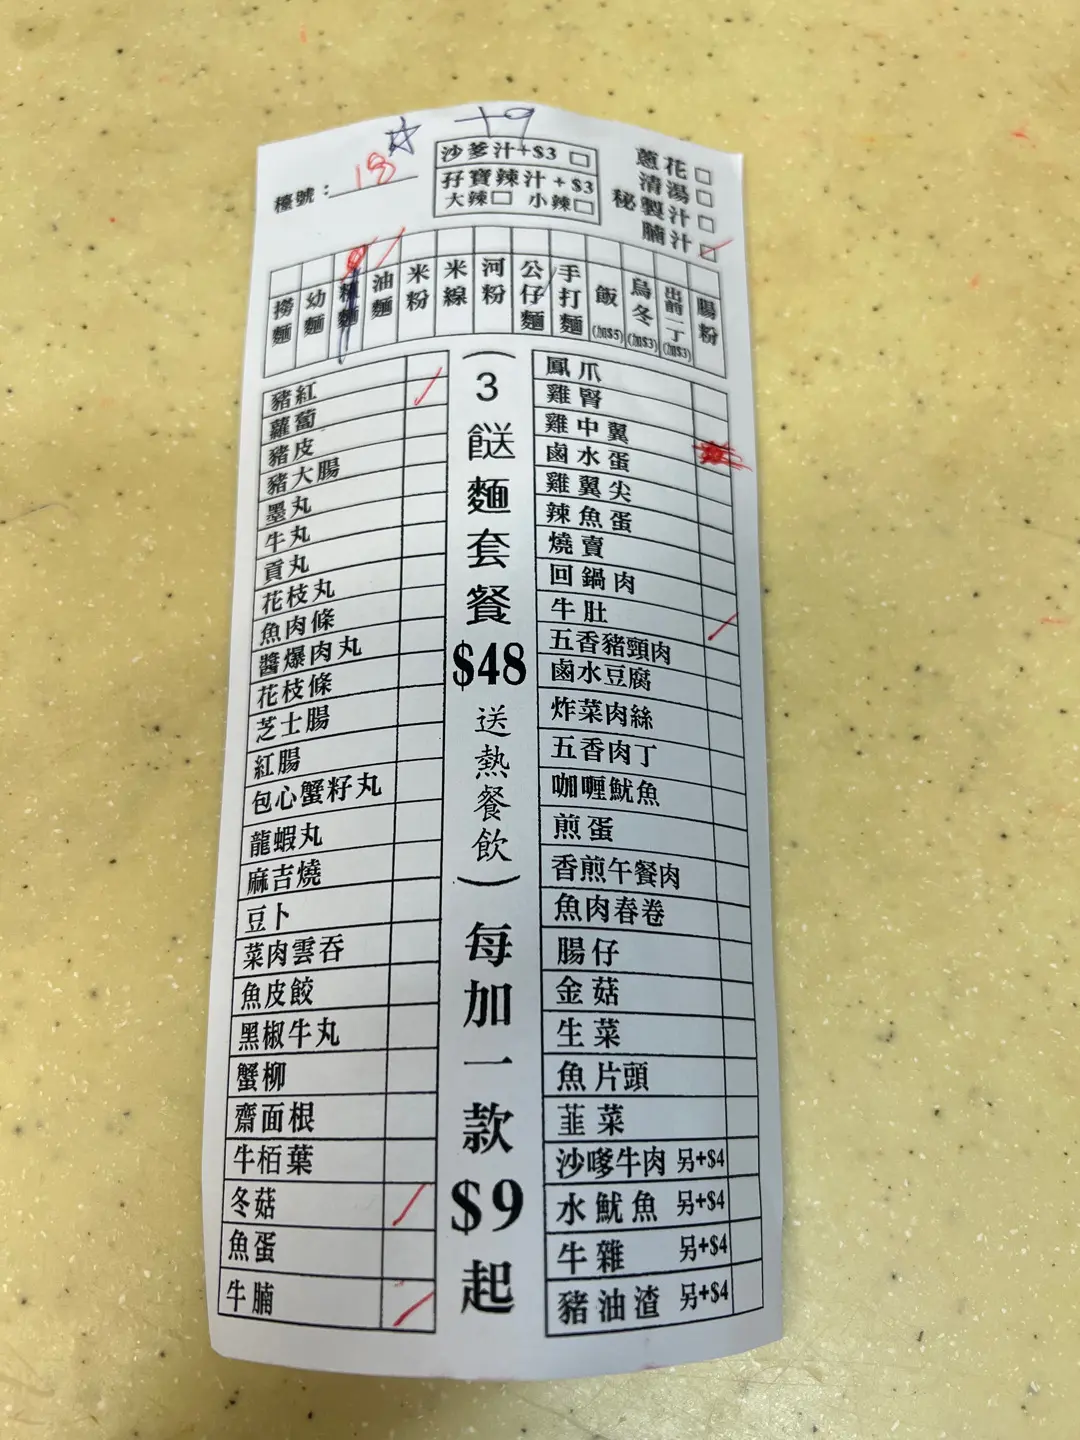 +9
檯號：18☆
沙爹汁+$3 □
孖寶辣汁+$3
大辣□ 小辣□
蔥花□
清湯□
秘製汁□
腩汁□
撈麵
幼麵
粗麵
油麵
米粉
米線
河粉
公仔麵
手打麵
飯(加$5)
烏冬(加$3)
出前一丁(加$3)
腸粉
豬紅
蘿蔔
豬皮
豬大腸
墨丸
牛丸
貢丸
花枝丸
魚肉條
醬爆肉丸
花枝條
芝士腸
紅腸
包心蟹籽丸
龍蝦丸
麻吉燒
豆卜
菜肉雲吞
魚皮餃
黑椒牛丸
蟹柳
齋面根
牛栢葉
冬菇
魚蛋
牛腩
(3餸麵套餐$48送熱餐飲)每加一款$9起
鳳爪
雞腎
雞中翼
鹵水蛋
雞翼尖
辣魚蛋
燒賣
回鍋肉
牛肚
五香豬頸肉
鹵水豆腐
炸菜肉絲
五香肉丁
咖喱魷魚
煎蛋
香煎午餐肉
魚肉春卷
腸仔
金菇
生菜
魚片頭
韮菜
沙嗲牛肉 另+$4
水魷魚 另+$4
牛雜 另+$4
豬油渣 另+$4